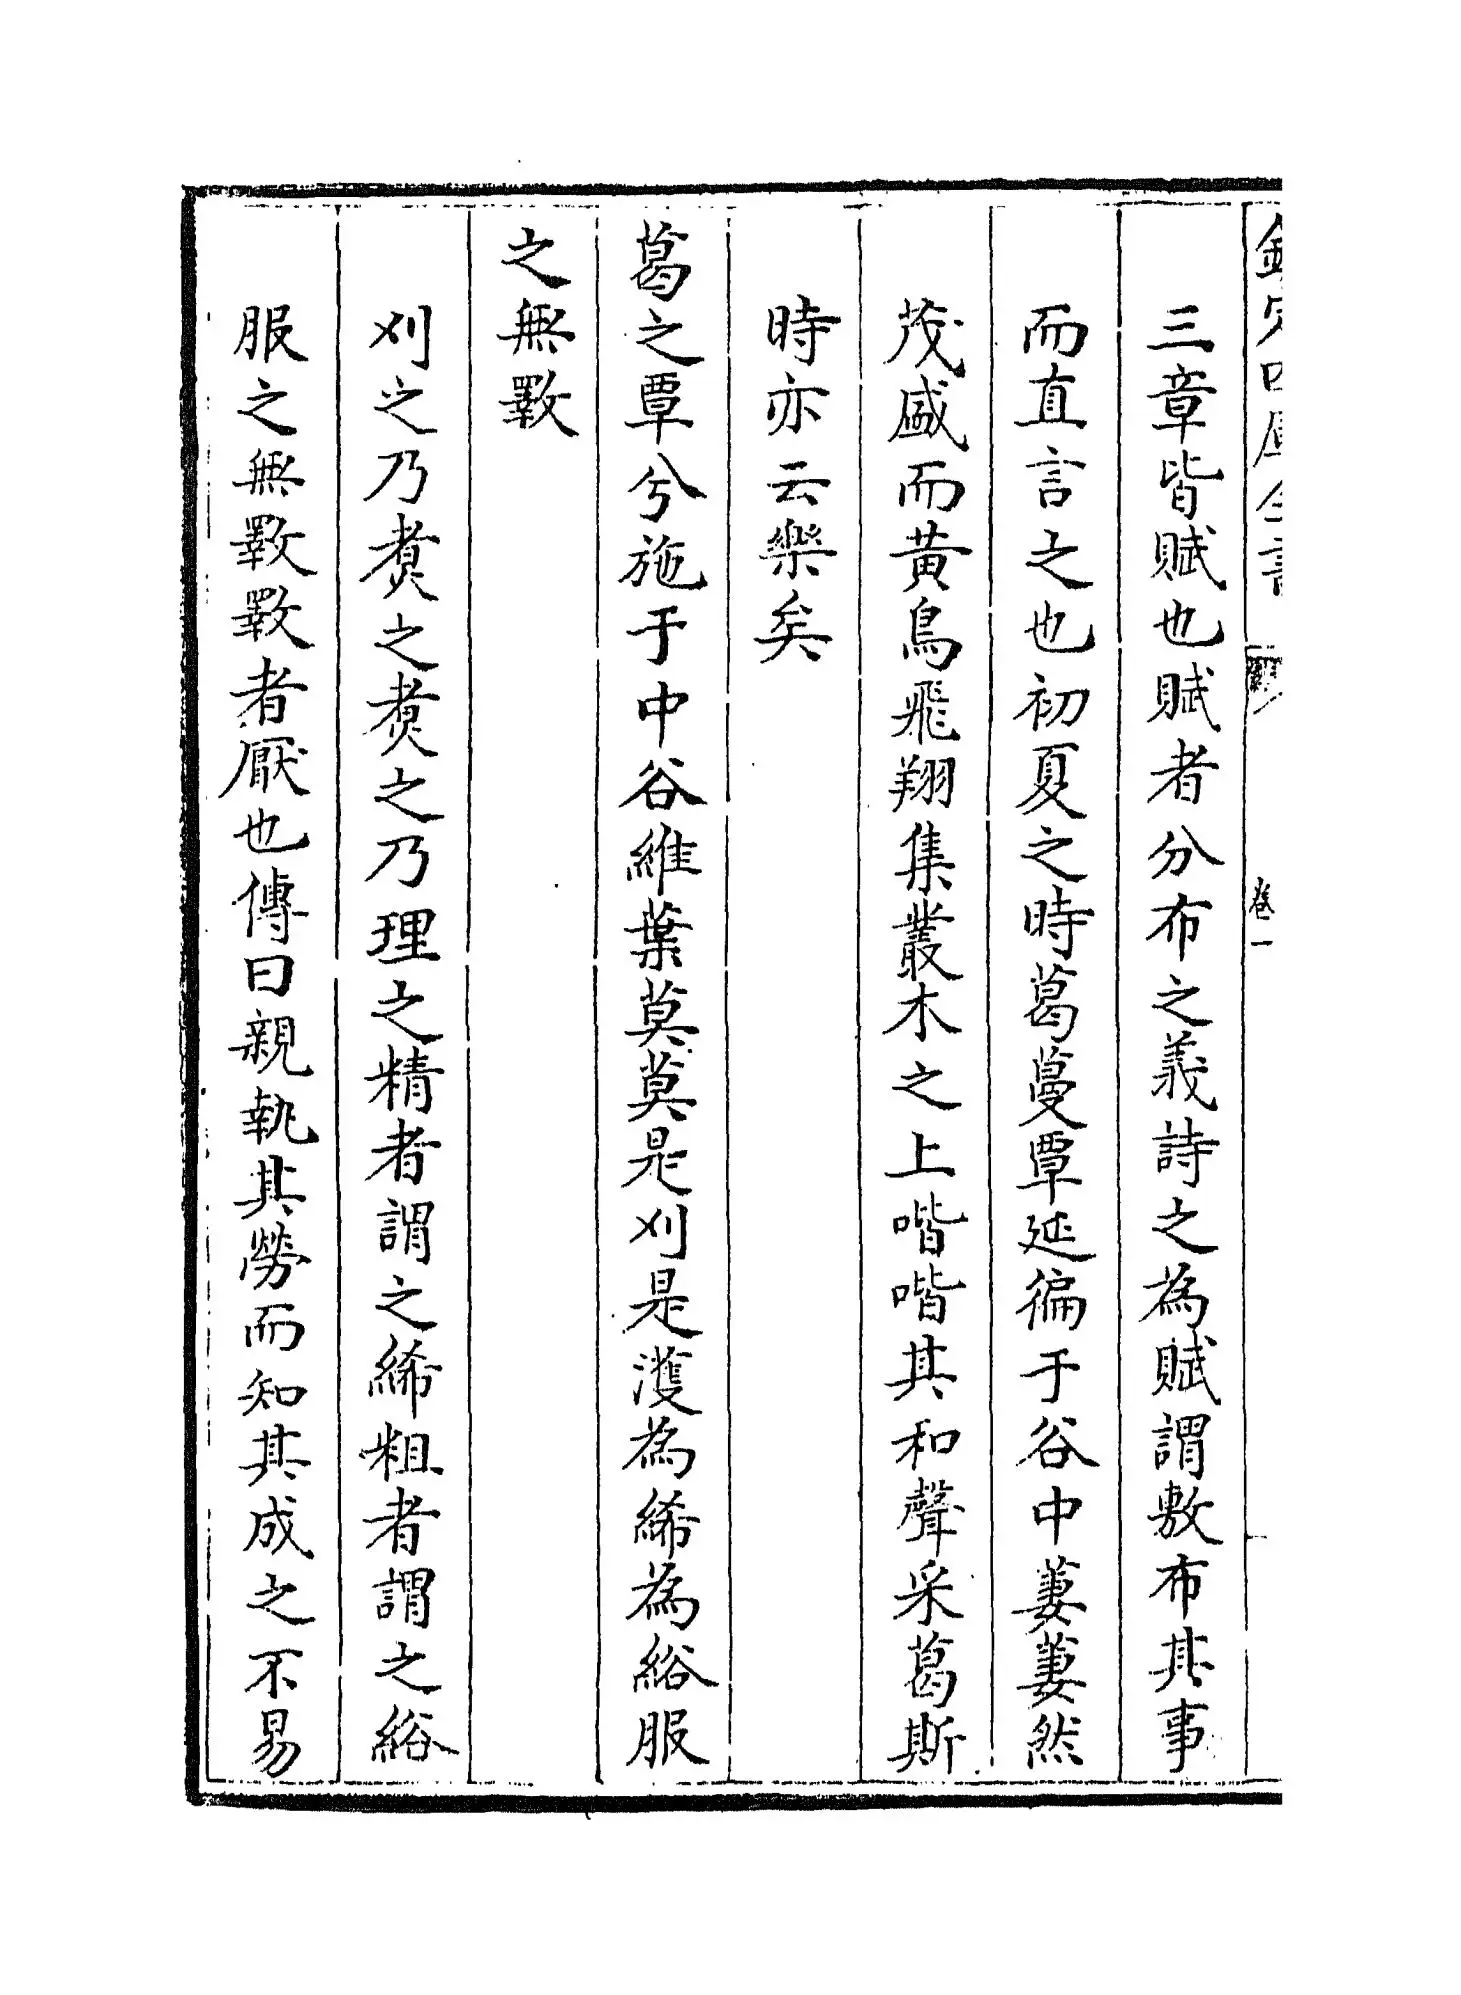 欽定四庫全書
卷一
三章皆賦也賦者分布之義詩之為賦謂敷布其事
而直言之也初夏之時葛蔓覃延徧于谷中萋萋然
茂盛而黄鳥飛翔集叢木之上喈喈其和聲采葛斯
時亦云樂矣
葛之覃兮施于中谷維葉莫莫是刈是濩為絺為綌服
之無斁
刈之乃煑之煑之乃理之精者謂之絺粗者謂之綌
服之無斁斁者厭也傳曰親執其勞而知其成之不易